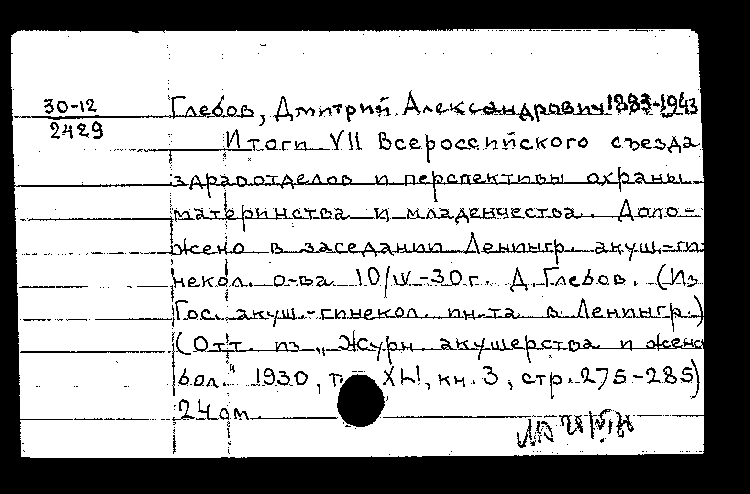 30-12
2429
Глебов, Дмитрий Александрович 1883-1943
Итоги VII Всероссийского съезда
здравотделов и перспективы охраны
материнства и младенчества. Доло-
жено в заседании Ленингр. акуш.-ги-
некол. о-ва 10/IV-30г. Д. Глебов. (Из
Гос. акуш.-гинекол. ин-та в Ленингр.)
(Отт. из „Журн. акушерства и женс
бол." 1930, т. XLI, кн. 3, стр. 275-285)
24 см.